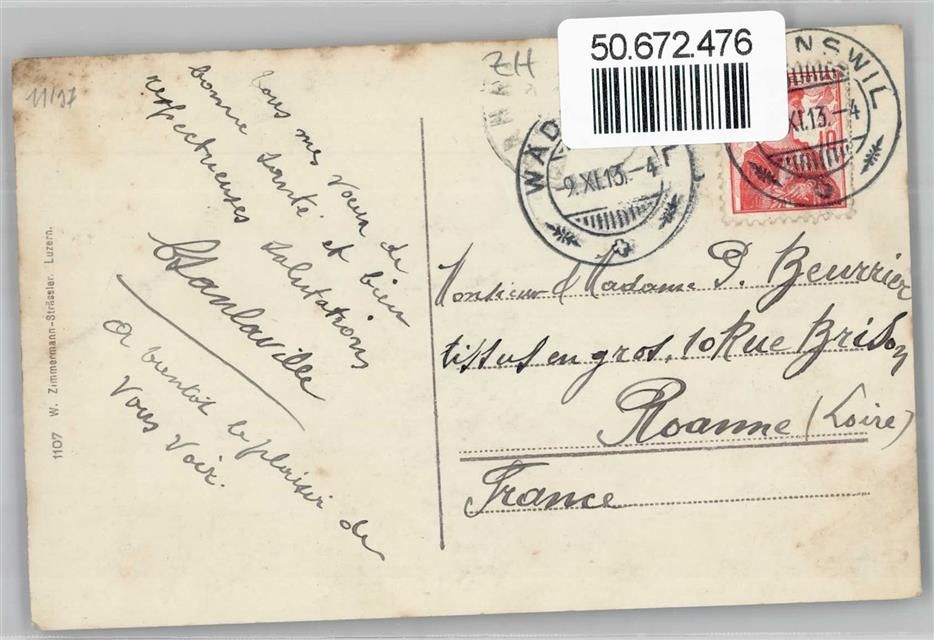 50.672.476
ZH
11/37
WÄD
9.XI.13.-4
NSWIL
XI.13.-4
10
Tous mes vœux de
bonne santé et bien
respectueuses salutations
Stanlaville
A bientôt le plaisir de
Vous Voir.
Monsieur & Madame P. Beurrier
tissus en gros, 10 Rue Brison
Roanne (Loire)
France
1107 W. Zimmermann-Strässler, Luzern.